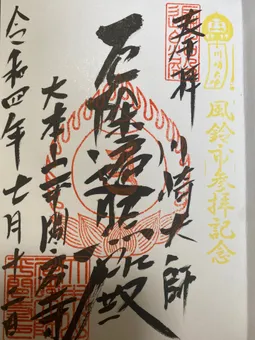 川崎大師
風鈴市参拝記念
奉拝
川崎大師
厄除遍照殿
大本山平間寺
令和四年七月